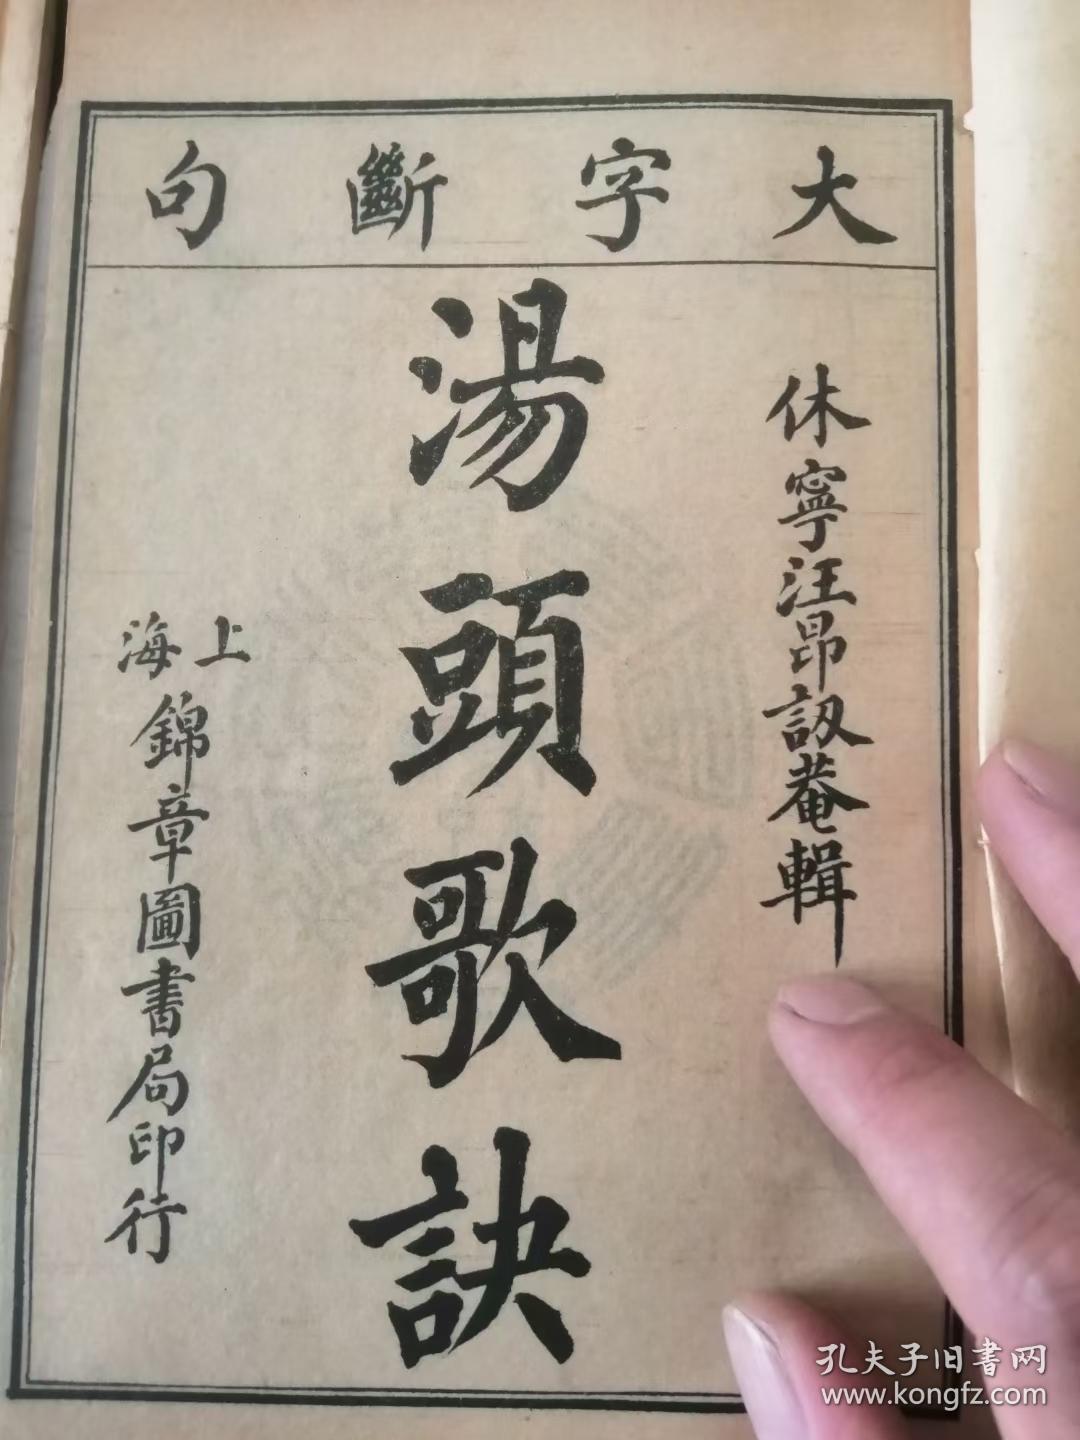 大字斷句
休寧汪昂訒菴輯
湯頭歌訣
上海
錦章圖書局印行
孔夫子旧書网
www.kongfz.com